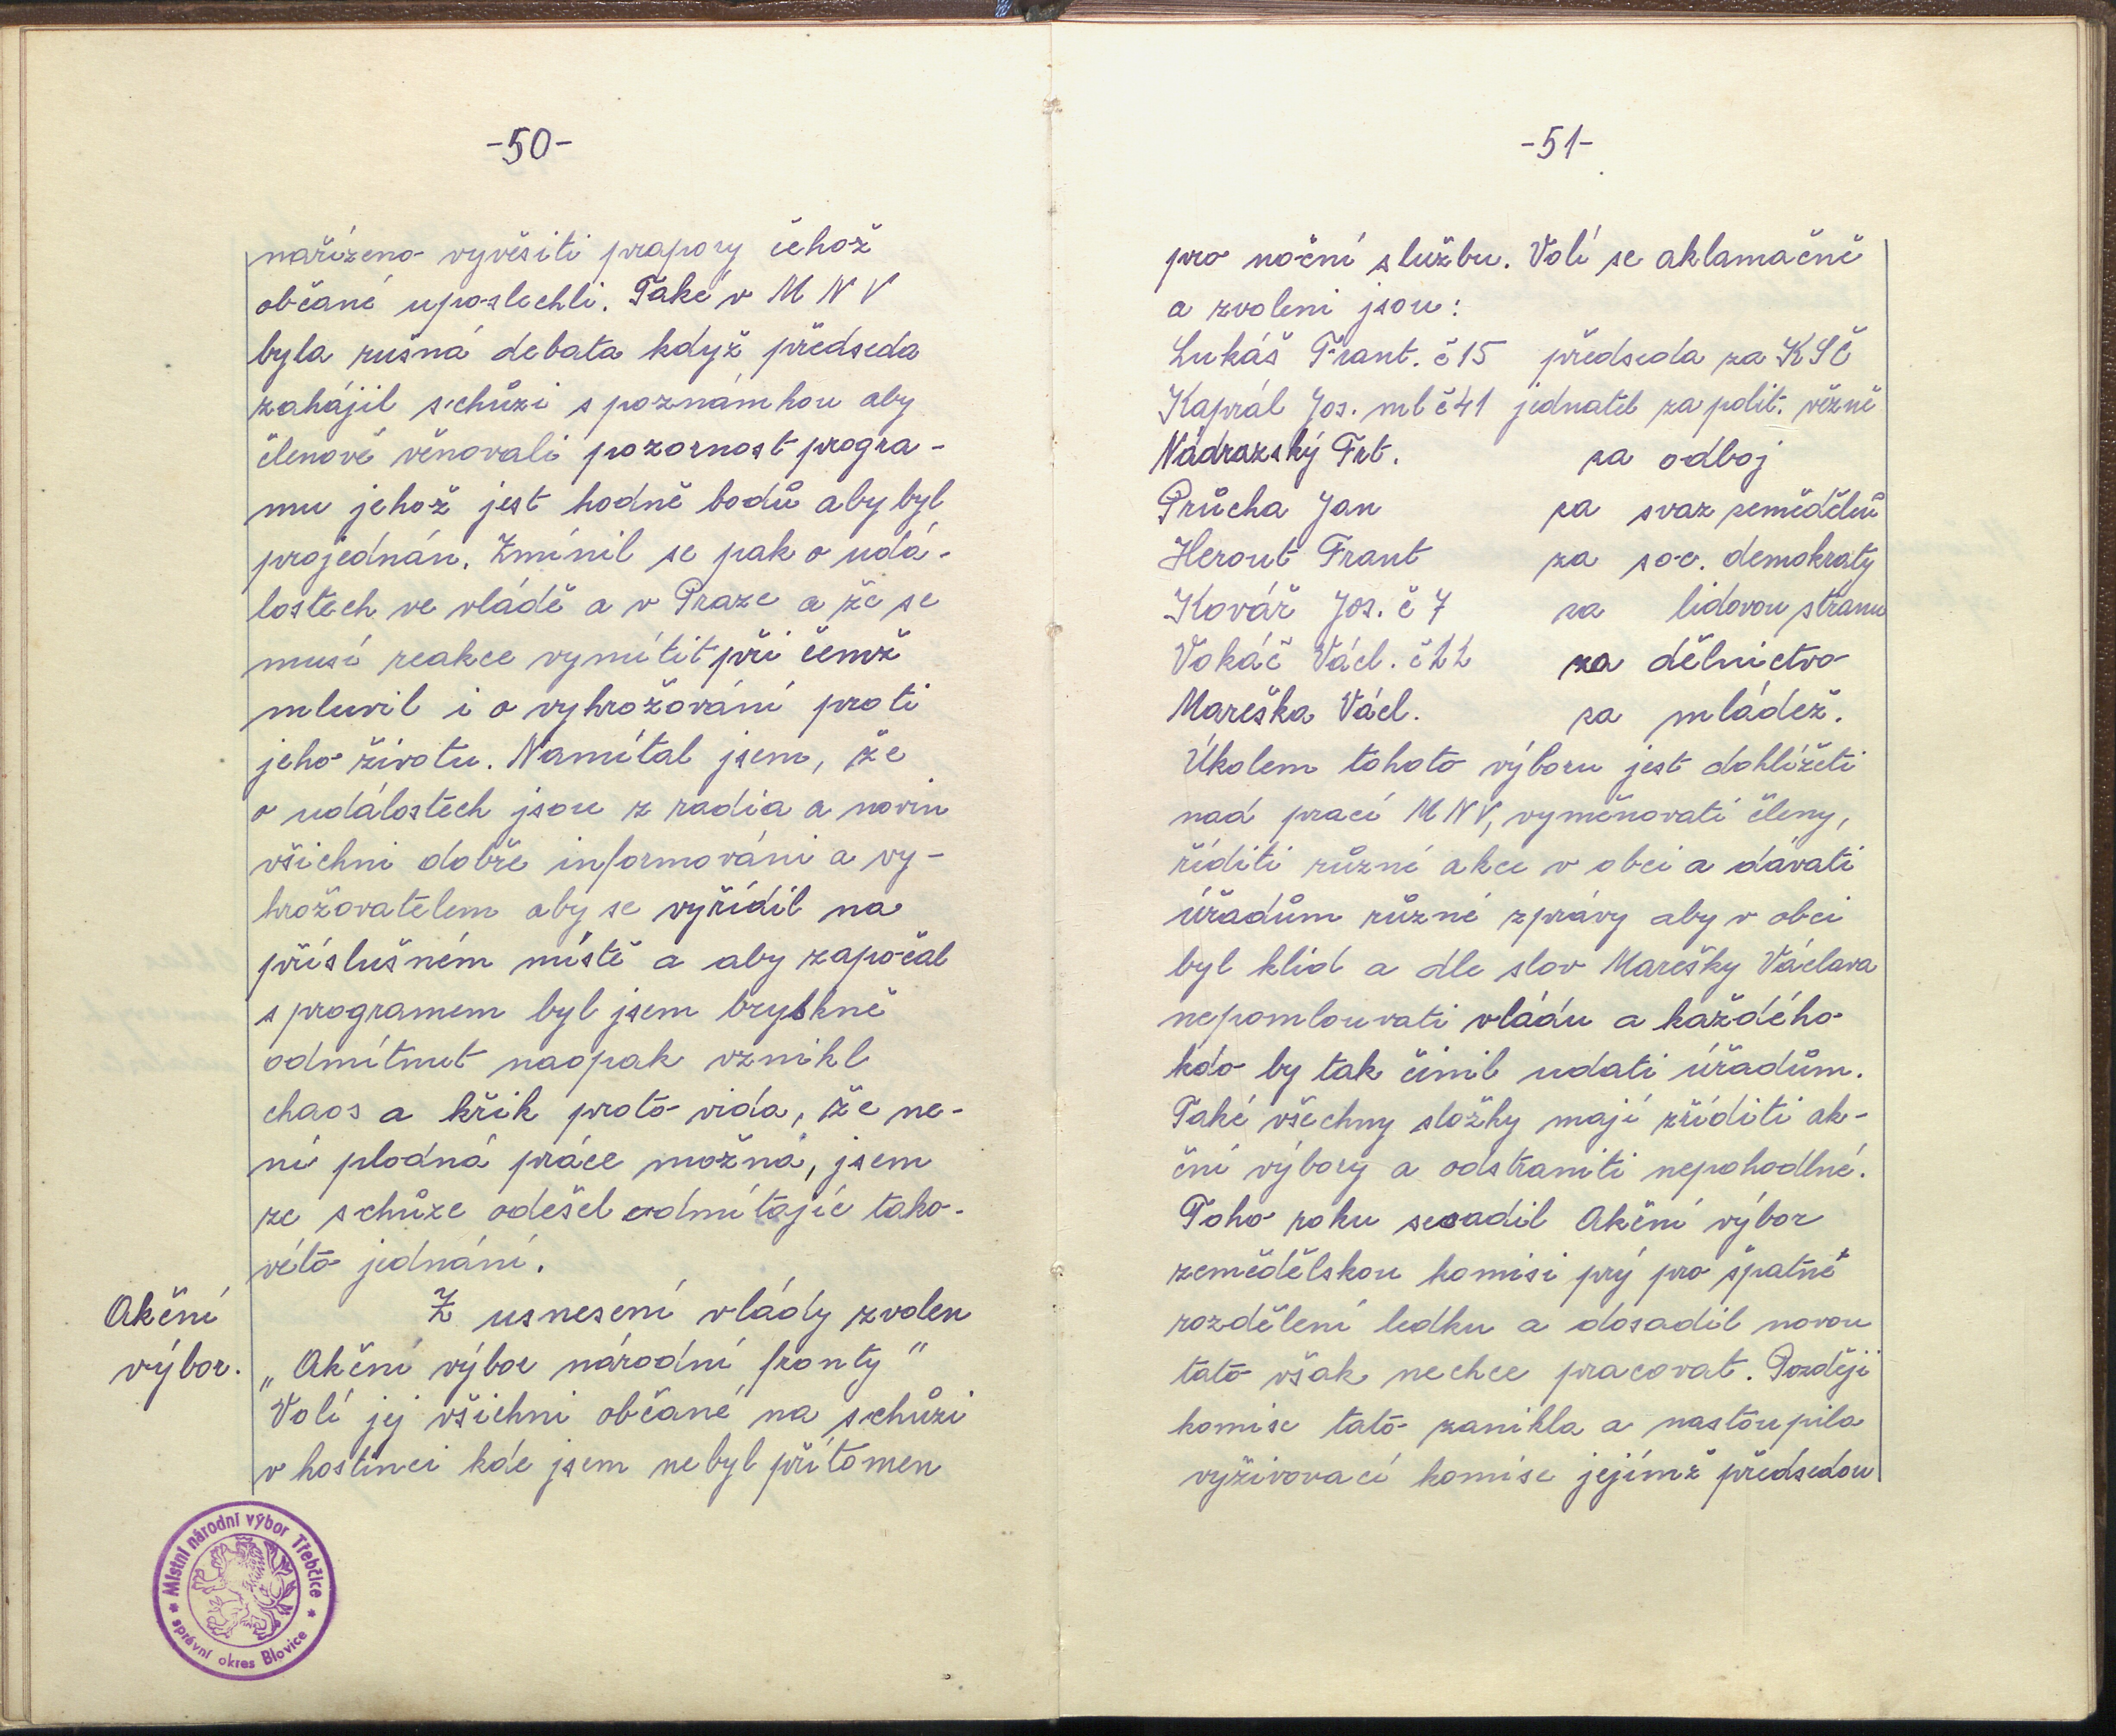 -50-
nařízeno vyvěsiti prapory čehož
občané uposlechli. Také v M N V
byla rušná debata když předseda
zahájil schůzi s poznámkou aby
členové věnovali pozornost progra-
mu jehož jest hodně bodů aby byl
projednán. Zmínil se pak o udá-
lostech ve vládě a v Praze a že se
musí reakce vymítit při čemž
mluvil i o vyhrožování proti
jeho životu. Namítal jsem, že
o událostech jsou z radia a novin
všichni dobře informováni a vy-
hrožovatelem aby se vyřídil na
příslušném místě a aby započal
s programem byl jsem bryskně
odmítnut naopak vznikl
chaos a křik proto vida, že ne-
ní plodná práce možná, jsem
ze schůze odešel odmítajíc tako-
véto jednání.
Akční
výbor.
Z usnesení vlády zvolen
„Akční výbor národní fronty"
Volí jej všichni občané na schůzi
v hostinci kde jsem nebyl přítomen
* Místní národní výbor Třebčice *
správní okres Blovice
-51-
pro noční službu. Volí se aklamačně
a zvoleni jsou:
Lukáš Frant. č 15 předseda za KSČ
Kaprál Jos. ml č 41 jednatel za polit. vězně
Nádrazský Frt. za odboj
Průcha Jan za svaz zemědělců
Herout Frant za soc. demokraty
Kovář Jos. č 7 za lidovou stranu
Vokáč Václ. č 22 za dělnictvo
Mareška Václ. za mládež.
Úkolem tohoto výboru jest dohlížeti
nad prací MNV, vyměnovati členy,
říditi různé akce v obci a dávati
úřadům různé zprávy aby v obci
byl klid a dle slov Marešky Václava
nepomlouvati vládu a každého
kdo by tak činil udati úřadům.
Také všechny složky mají zříditi ak-
ční výbory a odstraniti nepohodlné.
Toho roku sesadil Akční výbor
zemědělskou komisi prý pro špatné
rozdělení ledku a dosadil novou
tato však nechce pracovat. Později
komise tato zanikla a nastoupila
vyživovací komise jejímž předsedou